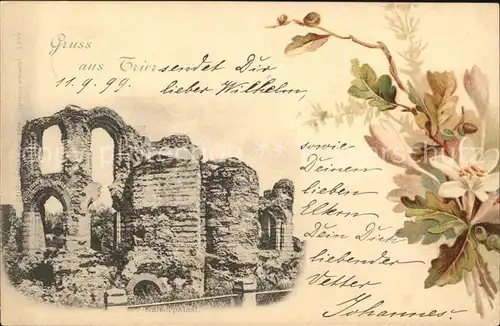 Gruss
aus Trier sendet Dir
11.9.99. lieber Wilhelm,
sowie
Deinen
lieben
Eltern
Dein Dich
liebender
Vetter
Johannes.
Kaiserpalast.